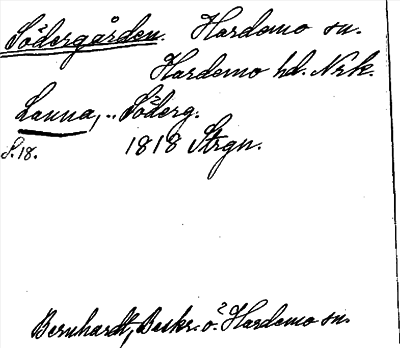 Södergården. Hardemo sn.
Hardemo hd. Nrk.
Lanna, .. Söderg.
S.18. 1818 Strgn.
Bernhardt, Beskr. ö. Hardemo sn.